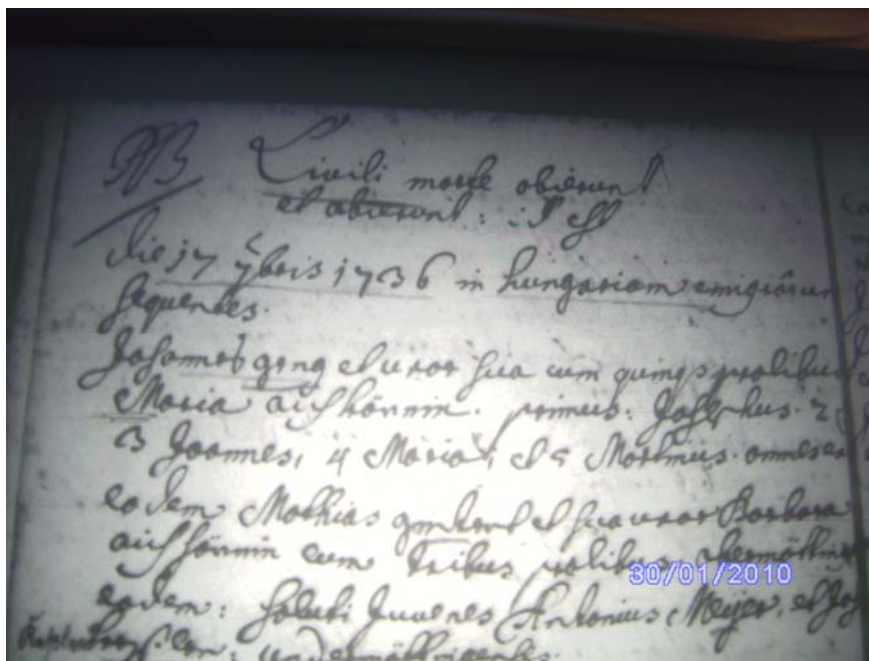 NB Civili morte obierunt
et abierunt:
die 17 7bris 1736 in hungariam emigrârun
sequentes.
Johannes geng et uxor sua cum quinqs prolibus
Maria aichhörnin. primus: Josephus. 2
3 Joannes, 4 Maria, et 5 Martinus. omnes
eodem Mathias et sua uxor Barbara
aichhörnin cum tribus prolibus
30/01/2010
eodem: soluti Juvenes Antonius Meijer, et